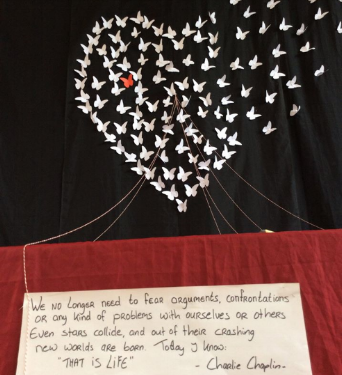 We no longer need to fear arguments, confrontations
or any kind of problems with ourselves or others
Even stars collide, and out of their crashing
new worlds are born. Today I know:
"THAT IS LIFE" - Charlie Chaplin-